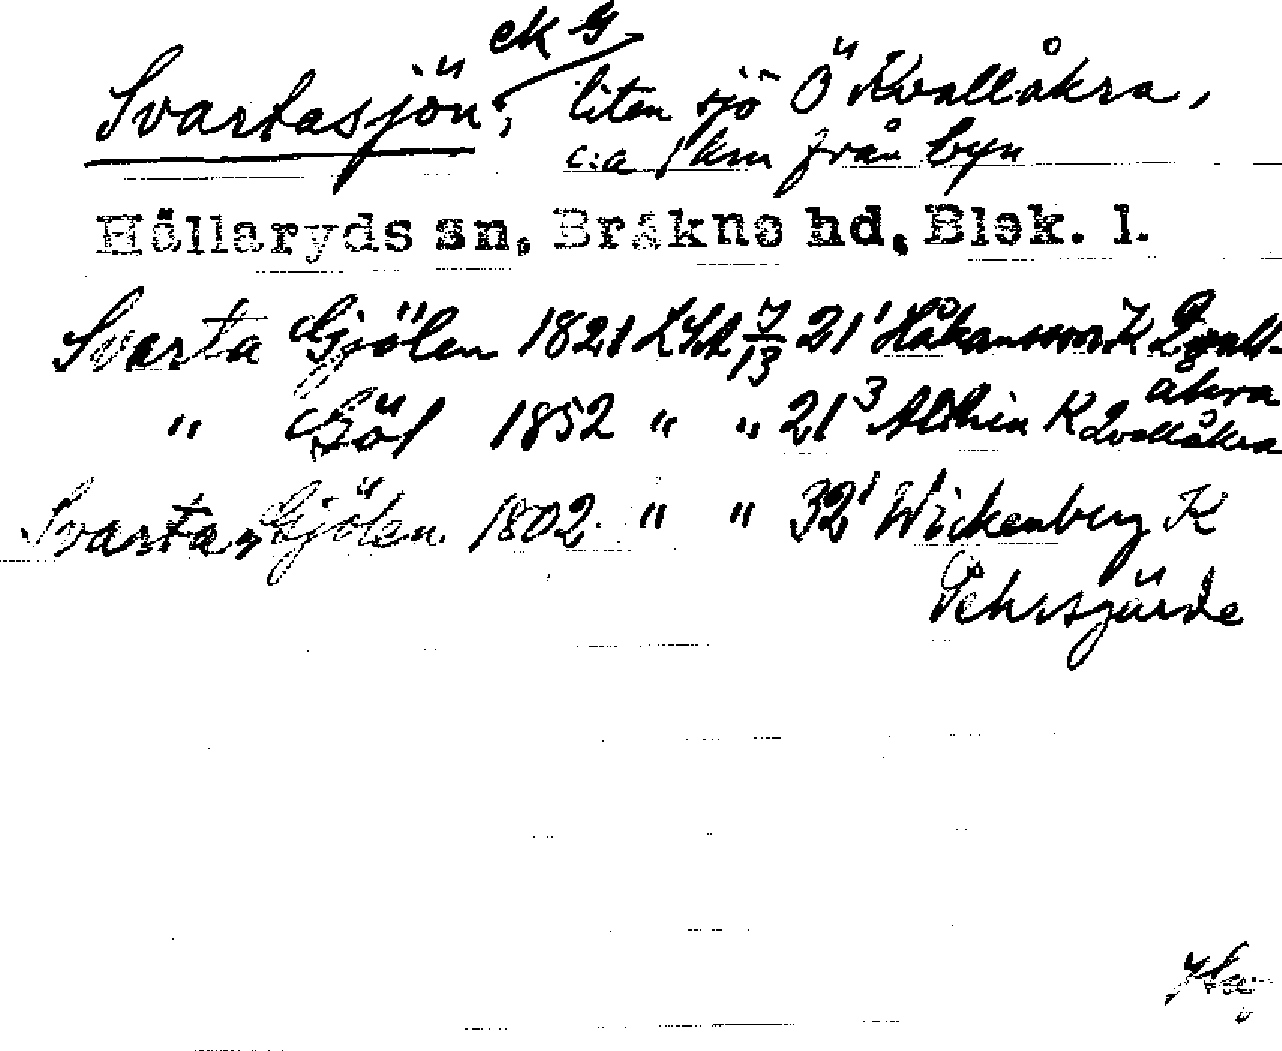 ek G
Svartasjön, liten sjö Ö Kvallåkra,
c:a 1 km från byn
Hällaryds sn, Bräkne hd, Blek. l.
Svarta Gjölen 1821 LSA 7/13 21¹ Håkansson K Qvall-
åkra
" Göl 1852 " " 21³ Althin K Qvallåkra
Svarta Gjölen 1802 " " 32¹ Wickenberg K
Pehrsgärde